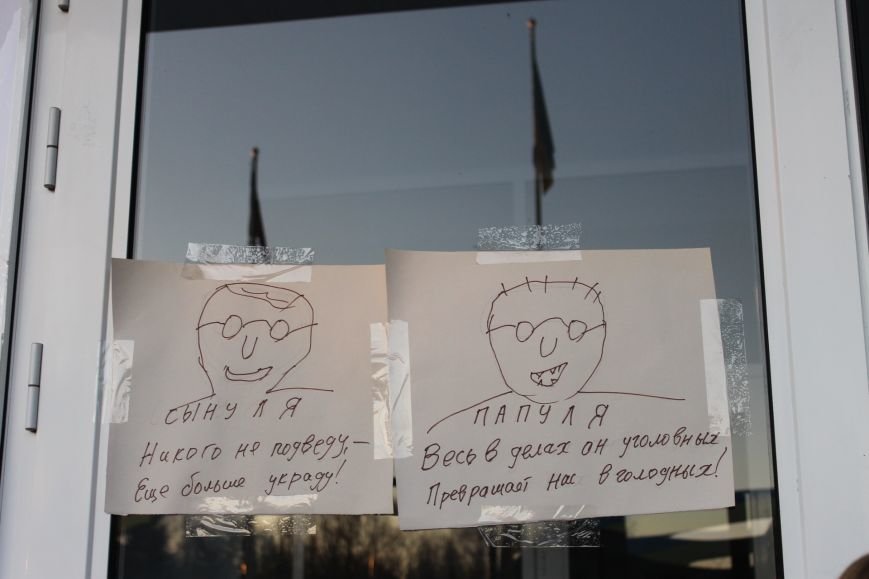 СЫНУЛЯ
Никого не подведу,–
Еще больше украду!
ПАПУЛЯ
Весь в делах он уголовных
Превращает нас в голодных!